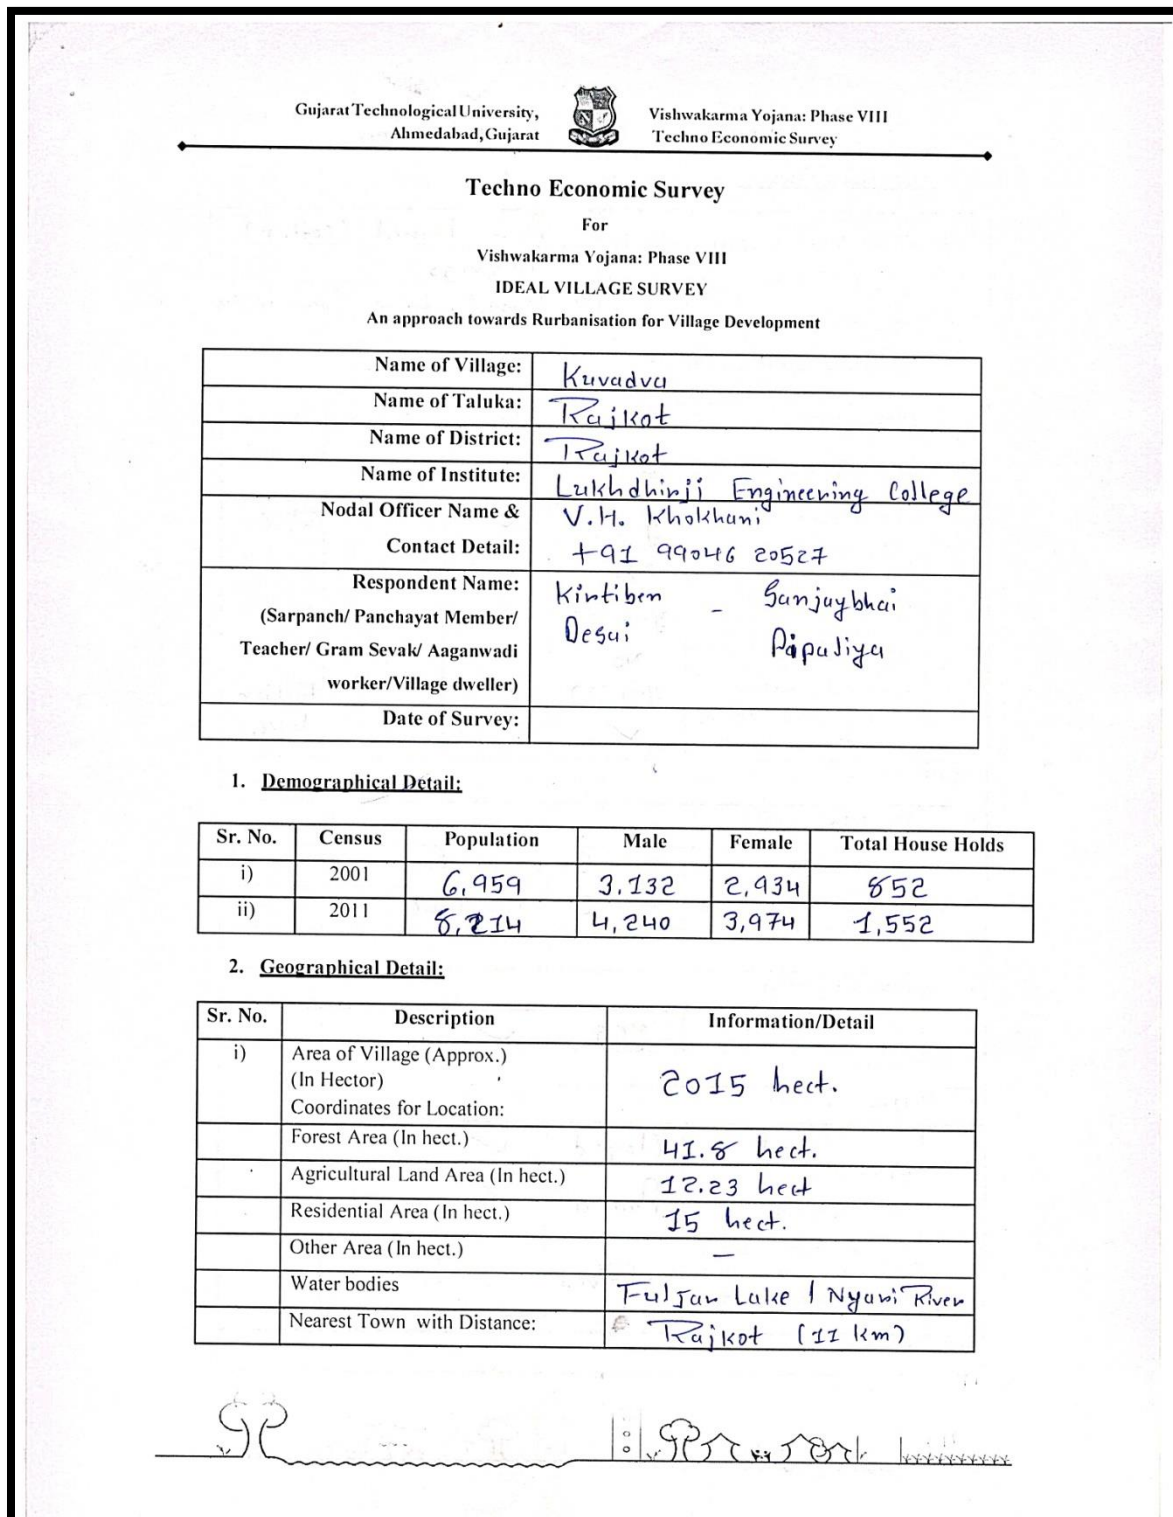 Gujarat Technological University, Vishwakarma Yojana: Phase VIII
Ahmedabad, Gujarat Techno Economic Survey
Techno Economic Survey
For
Vishwakarma Yojana: Phase VIII
IDEAL VILLAGE SURVEY
An approach towards Rurbanisation for Village Development
Name of Village: Kuvadva
Name of Taluka: Rajkot
Name of District: Rajkot
Name of Institute: Lukhdhirji Engineering College
Nodal Officer Name & V.H. Khokhani
Contact Detail: +91 99046 20527
Respondent Name: Kirtiben - Sanjaybhai
(Sarpanch/ Panchayat Member/ Desai Pipaliya
Teacher/ Gram Sevak/ Aaganwadi
worker/Village dweller)
Date of Survey:
1. Demographical Detail:
Sr. No. Census Population Male Female Total House Holds
i) 2001 6,959 3,132 2,934 852
ii) 2011 8,214 4,240 3,974 1,552
2. Geographical Detail:
Sr. No. Description Information/Detail
i) Area of Village (Approx.)
(In Hector) 2015 hect.
Coordinates for Location:
Forest Area (In hect.) 41.8 hect.
Agricultural Land Area (In hect.) 12.23 hect
Residential Area (In hect.) 15 hect.
Other Area (In hect.) —
Water bodies Fuljar Lake / Nyari River
Nearest Town with Distance: Rajkot (11 km)